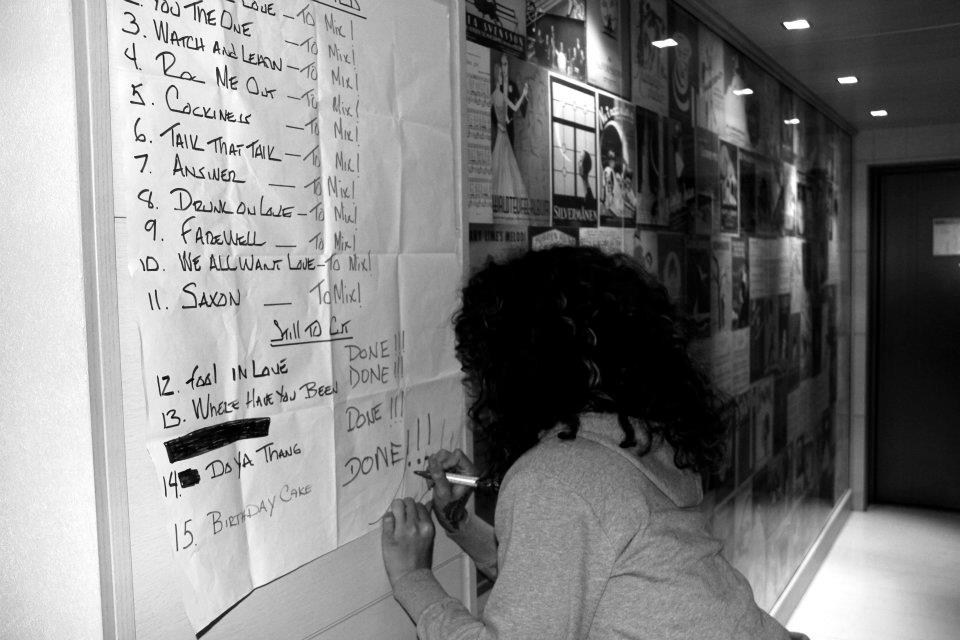 YOU THE ONE — TO MIX!
3. WATCH AND LEARN — TO MIX!
4. ROC ME OUT — TO MIX!
5. COCKINESS — TO MIX!
6. TALK THAT TALK — TO MIX!
7. ANSWER — TO MIX!
8. DRUNK ON LOVE — TO MIX!
9. FAREWELL — TO MIX!
10. WE ALL WANT LOVE — TO MIX!
11. SAXON — TO MIX!
STILL TO CUT
12. FOOL IN LOVE DONE!!!
13. WHERE HAVE YOU BEEN DONE!!!
DONE!!!
14. DO YA THANG DONE!!!
15. BIRTHDAY CAKE
SVENSSON
WALDTEUFELALBUM
SILVERMÅNEN
HARRY LIME'S MELODI